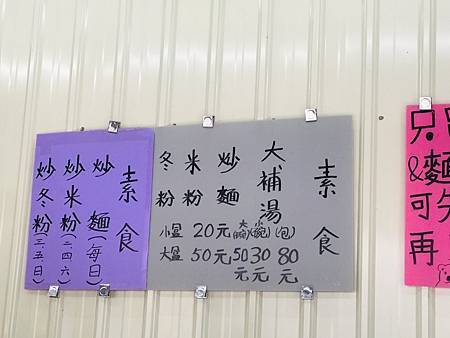 素食
炒麵(每日)
炒米粉(二四六)
炒冬粉(三五日)
素食
大補湯
炒麵
米粉
冬粉
小盤 20元 (大碗) (小碗) (包)
大盤 50元 50元 30元 80元
只
&麵
可
再